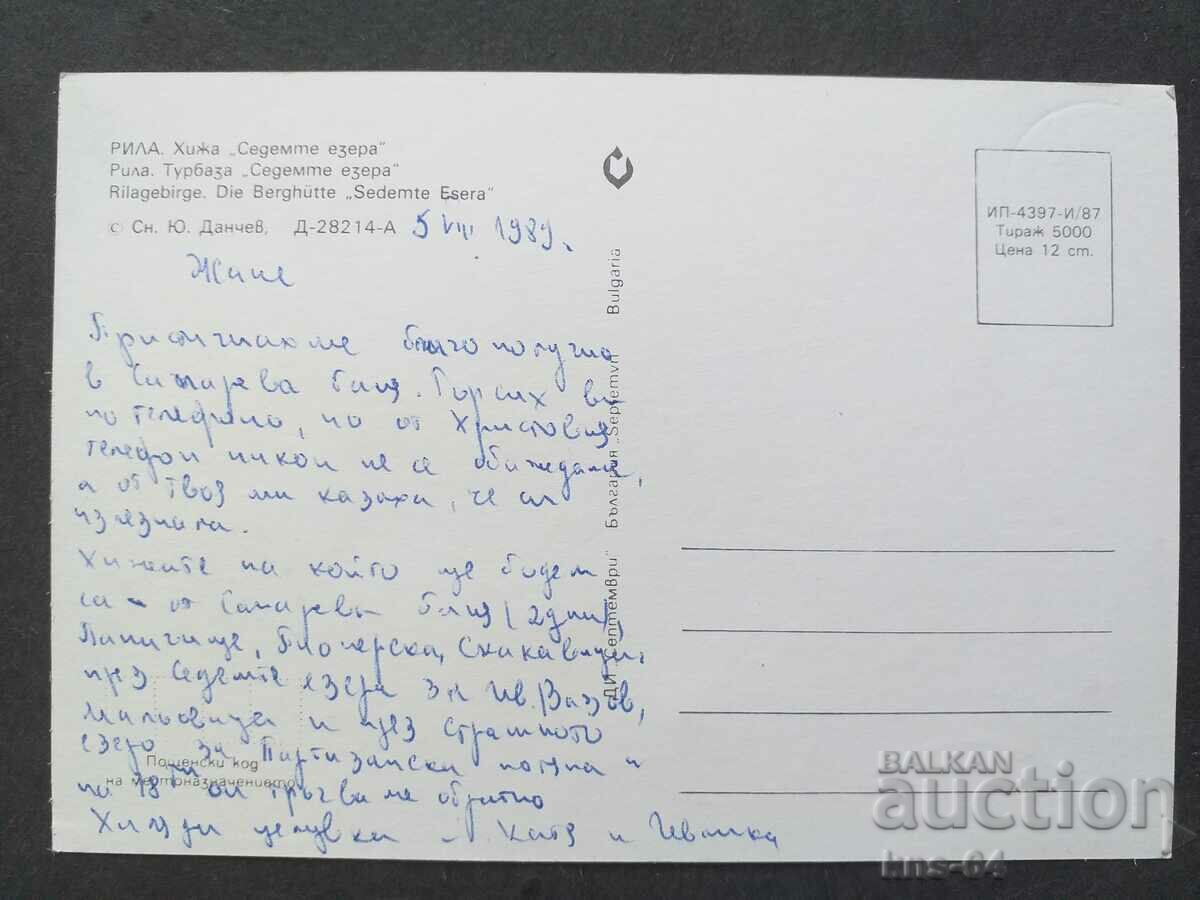 РИЛА. Хижа „Седемте езера"
Рила. Турбаза „Седемте езера"
Rilagebirge. Die Berghütte „Sedemte Esera"
© Сн. Ю. Данчев, Д-28214-А 5 VIII 1989.
Пристигнахме благополучно
в Сапарева баня. Търсих ви
по телефона, но от Христовия
телефон никой не се обаждаше,
а от твоя ми казаха, че си
излязла.
Хижите на който ще бъдем
са - от Сапарева баня (2 дни),
Пионерска, Скакавица,
през Седемте езера за Ив. Вазов,
Мальовица и през Страшното
езеро за Партизански поляна и
на 18 ти тръгваме обратно
Хиляди целувки - Катя и Иванка
Пощенски код
на местоназначението
ДИ „Септември" България „Septemvri" Bulgaria
ИП-4397-И/87
Тираж 5000
Цена 12 ст.
BALKAN
auction
kns-64